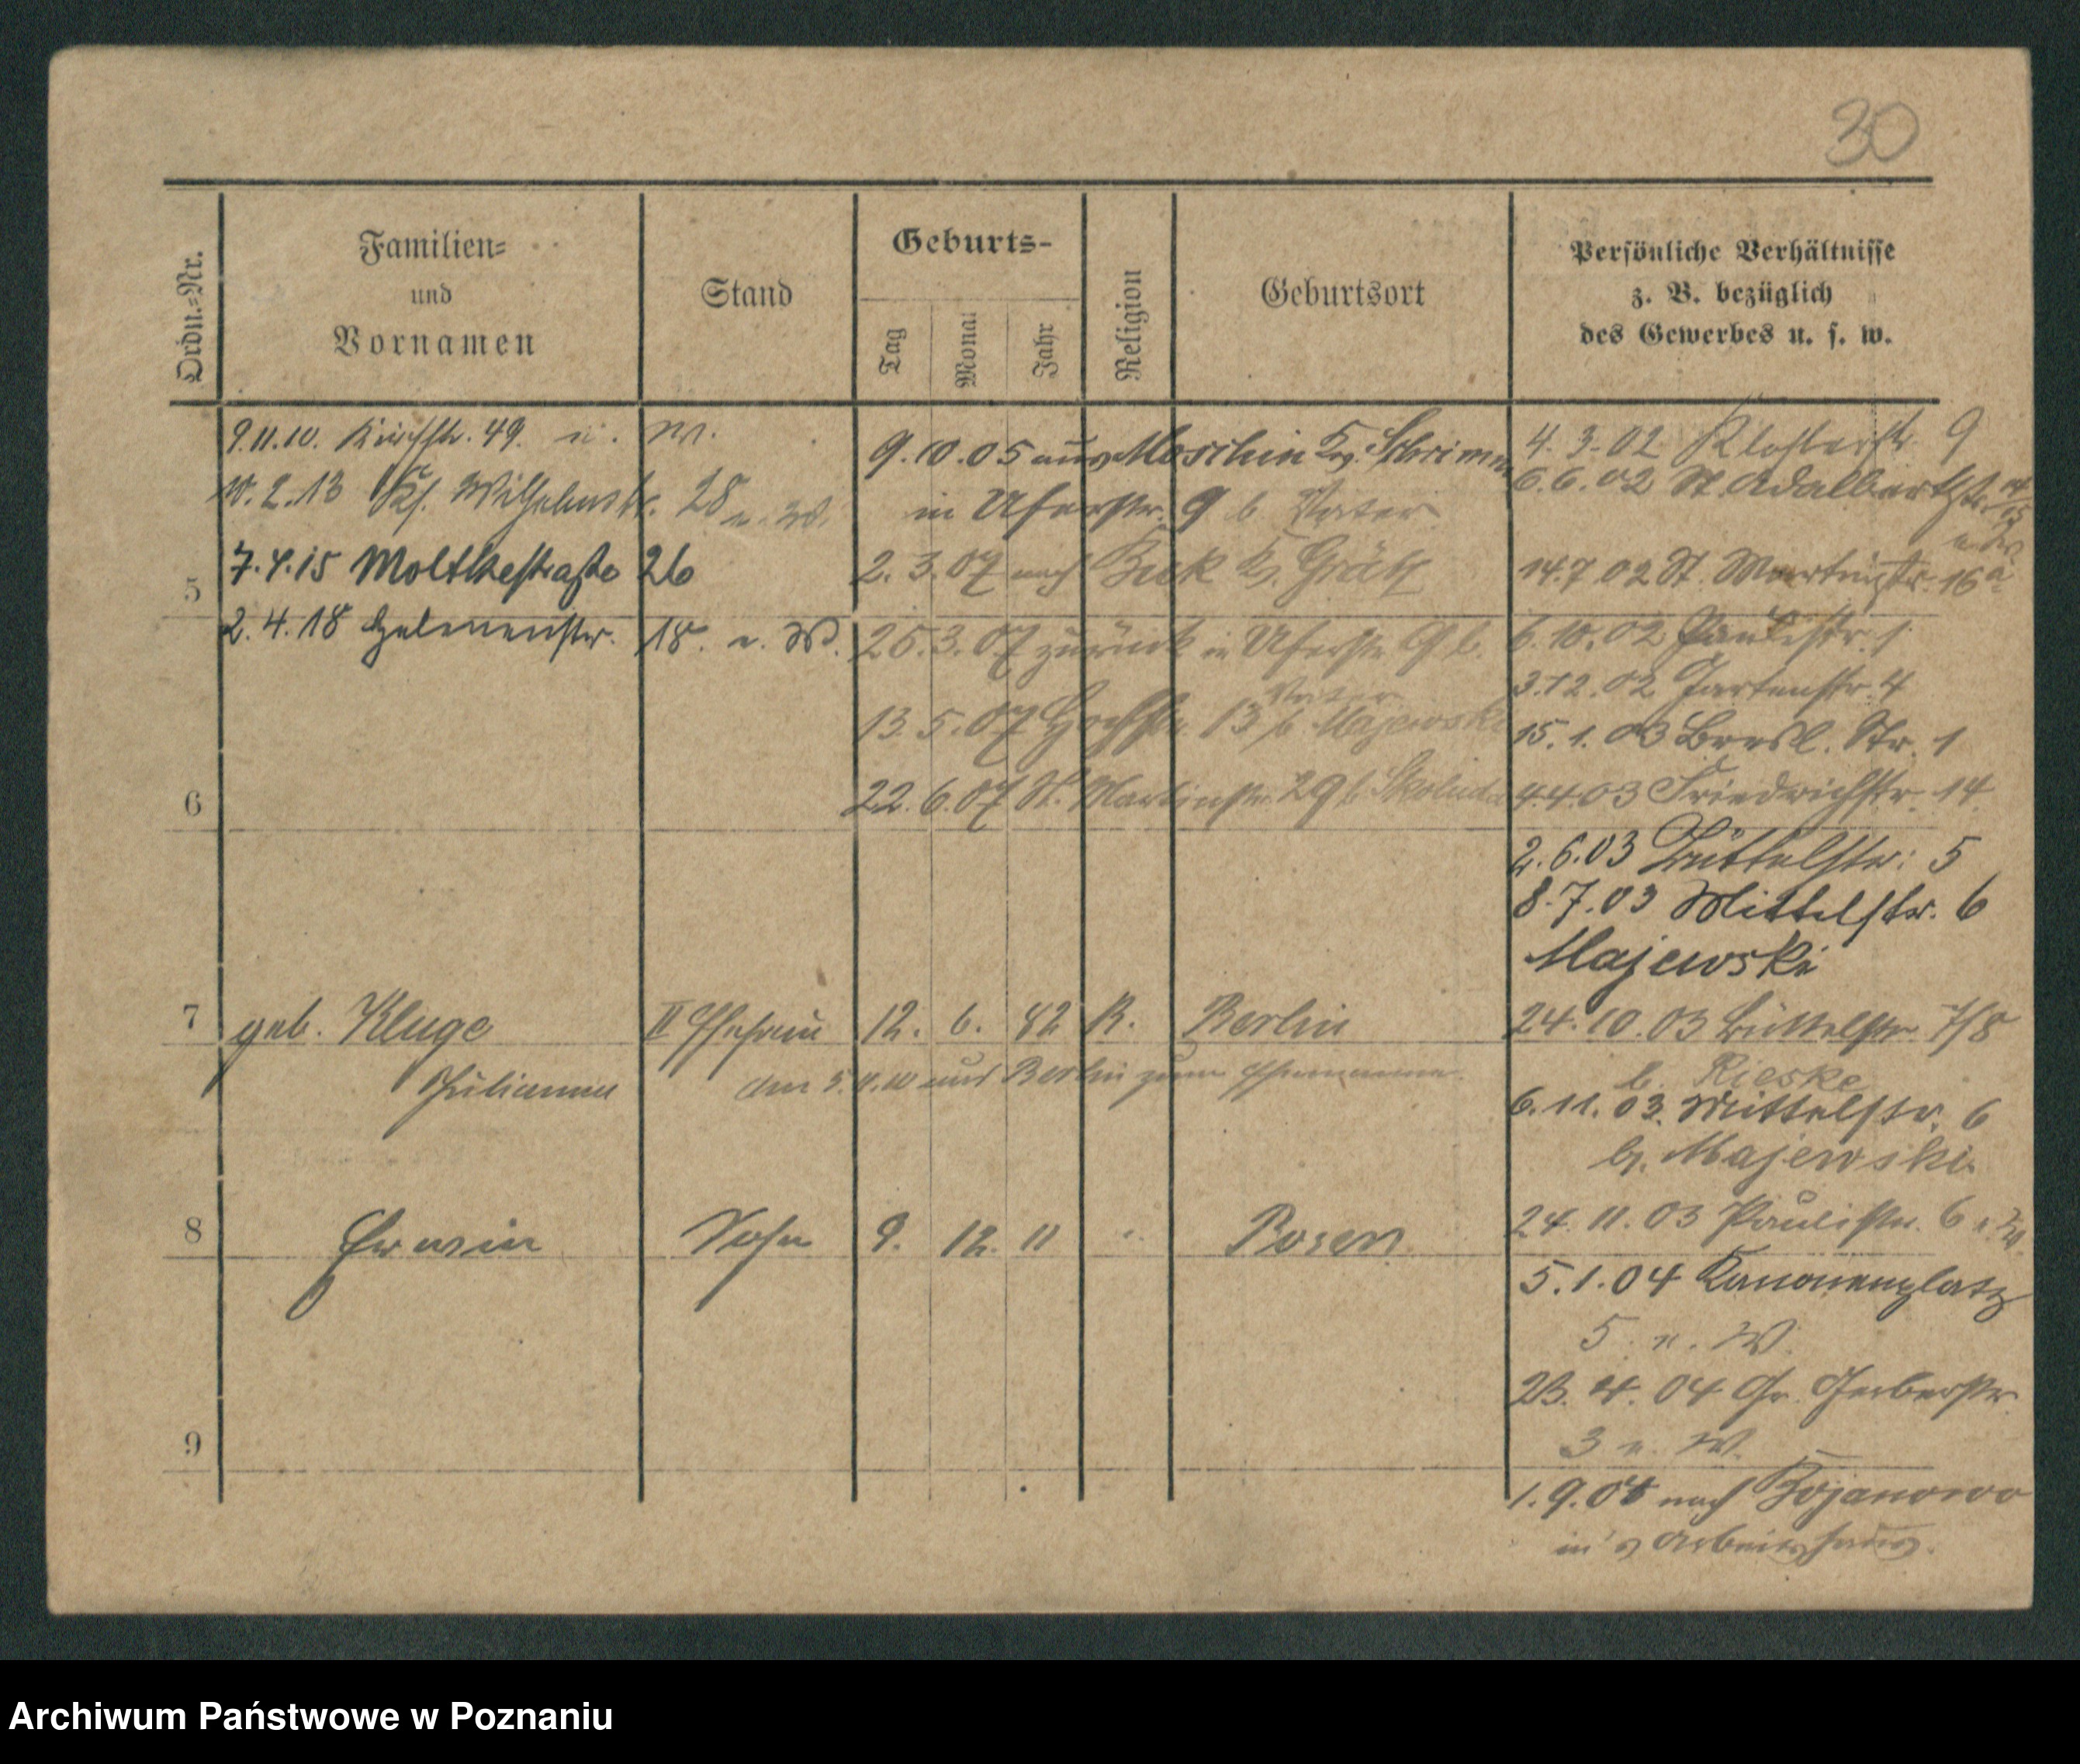 30
Ordn.=Nr.
Familien=
und
Vornamen
Stand
Geburts-
Tag
Monat
Jahr
Religion
Geburtsort
Persönliche Verhältnisse
z. B. bezüglich
des Gewerbes u. s. w.
9.11.10. 49. u. W.
10.2.13 Kf. Wilhelmstr. 28 u. W.
5
7.4.15 Moltkestraße 26
2.4.18 Helenenstr. 18. u. W.
9.10.05 aus Moschin Kr. Schrimm
in Uferstr. 9 b. Vater
2.3.07 nach Buk Kr. Grätz
25.3.07 zurück in Uferstr. 9 b.
Vater
13.5.07 13 b. Majewski
22.6.07 St. Martinstr. 29 b.
4.3.02 Klosterstr. 9
6.6.02 St. Adalbertstr. 14/15
u. W.
14.7.02 St. Martinstr. 16a
6.10.02 Paulistr. 1
3.12.02 Gartenstr. 4
15.1.03 Bresl. Str. 1
4.4.03 Friedrichstr. 14
6
2.6.03 Büttelstr. 5
8.7.03 Mittelstr. 6
Majewski
7
geb. Kluge
II Ehefrau
12. 6. 82
K.
Berlin
24.10.03 Büttelstr. 7/8
Julianna
am 5.11.10 aus Berlin zum Ehemanne.
b. Rieske
6.11.03. Mittelstr. 6
b. Majewski
8
Erwin
Sohn
9. 12. 11
"
Posen
24.11.03 Paulistr. 6 u. W.
5.1.04 Kanonenplatz
5 u. W.
23.4.04 Gr. Gerberstr.
3 u. W.
9
1.9.04 nach Bojanowo
in's Arbeitshaus.
Archiwum Państwowe w Poznaniu